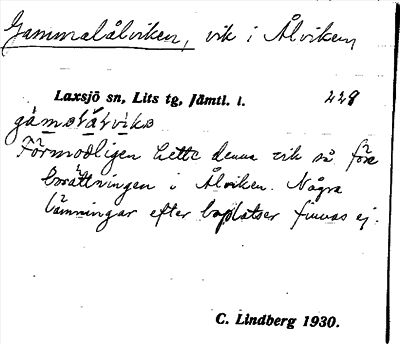 Gammalålviken, vik i Ålviken
Laxsjö sn, Lits tg, Jämtl. l. 228
Förmodligen hette denna vik så före
bosättningen i Ålviken. Några
lämningar efter boplatser finnas ej.
C. Lindberg 1930.